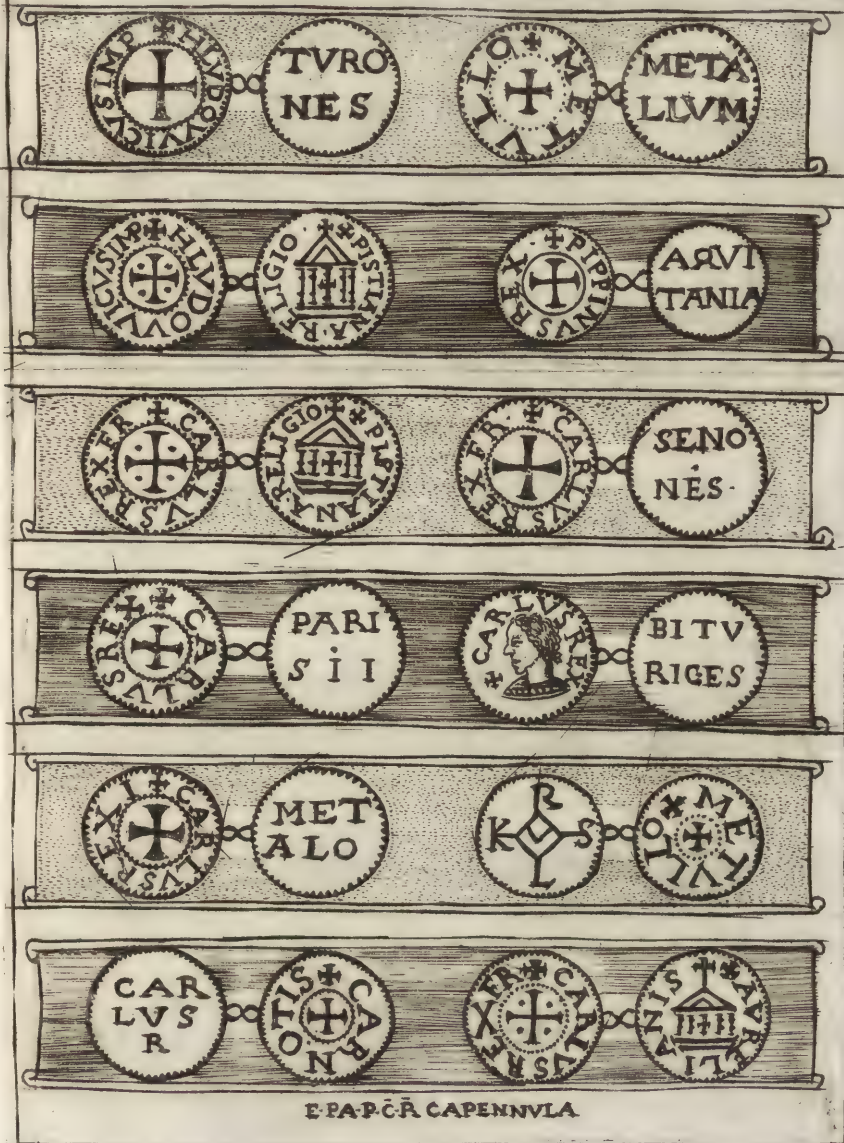 ✠ HLVDOVVICVS IMP
TVRO
NES
✠ METVLLO
METAL
LIVM
✠ HLVDOVVICVS IMP
✠ PISTIANA · RELIGIO ·
✠ PIPPINVS REX ·
AQVI
TANIA
✠ CARLVS REX FR
✠ PISTIANA RELIGIO
✠ CARLVS REX FR ·
SENO
NES ·
✠ CARLVS RE✠
PARI
SII
✠ CARLVS REX
BITV
RIGES
✠ CARLVS REX I
MET
ALO
K R L S
✠ METVLLO
CAR
LVS
R
✠ CARNOTIS
✠ CARLVS REX FR
✠ AVRELIANIS
E·PA·P·C̄·R̄ CAPENNVLA